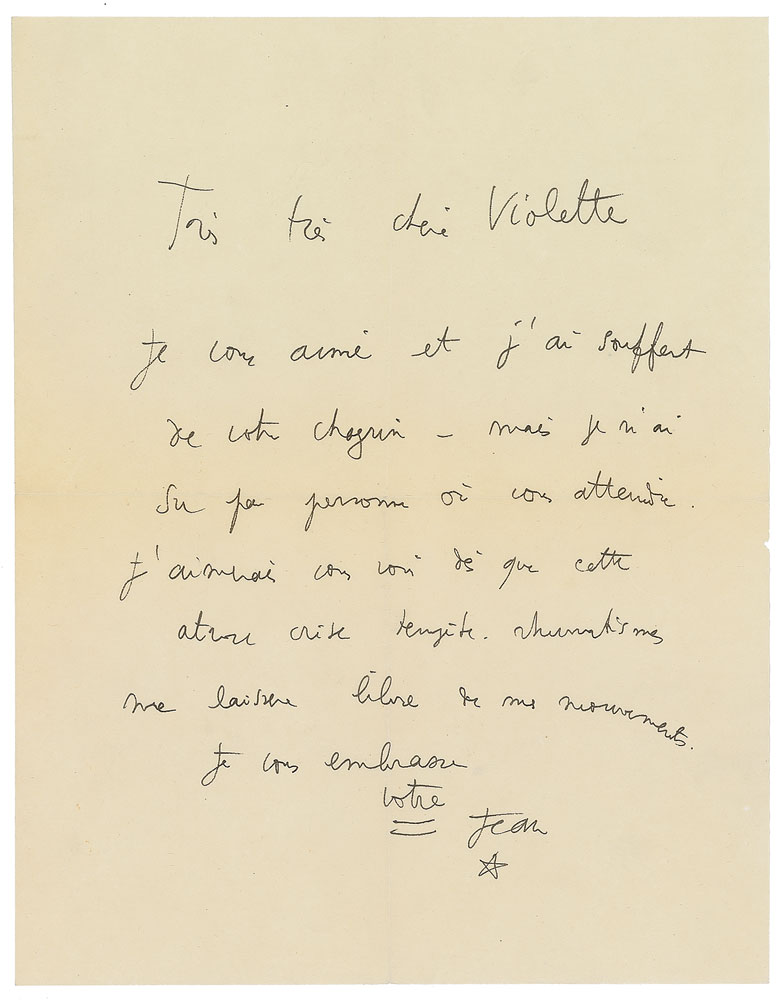 Très très chère Violette
Je vous aime et j'ai souffert
de votre chagrin – mais je n'ai
su par personne où vous attendre.
J'aimerais vous voir dès que cette
atroce crise rhumatismes
me laissera libre de mes mouvements.
Je vous embrasse
votre
Jean